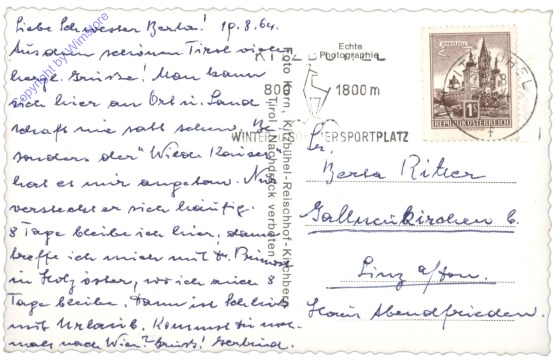 Liebe Schwester Berta! 19.8.64.
Aus dem schönen Tirol viele
herzl. Grüsse! Man kann
sich hier an Ort u. Land
schaft nie satt sehen. Be
sonders der "Wilde Kaiser"
hat es mir angetan. Nur
versteckt er sich häufig.
8 Tage bleibe ich hier, dann
treffe ich mich mit
in , wo ich auch 8
Tage bleibe. Dann ist Schluß
mit Urlaub. Kommst Du noch
mals nach Wien? Gruß! Gertrud.
copyright by Winstore
Foto Horn, Kitzbühel-Reischhof-Kirchberg
Tirol. Nachdruck verboten
Echte
Photographie
KITZBÜHEL
800 1800 m
WINTER SOMMERSPORTPLATZ
KITZBÜHEL
1S
REPUBLIK ÖSTERREICH
Sr.
Berta Ritter
Gallneukirchen b.
Linz a/Don.
Haus Abendfrieden.